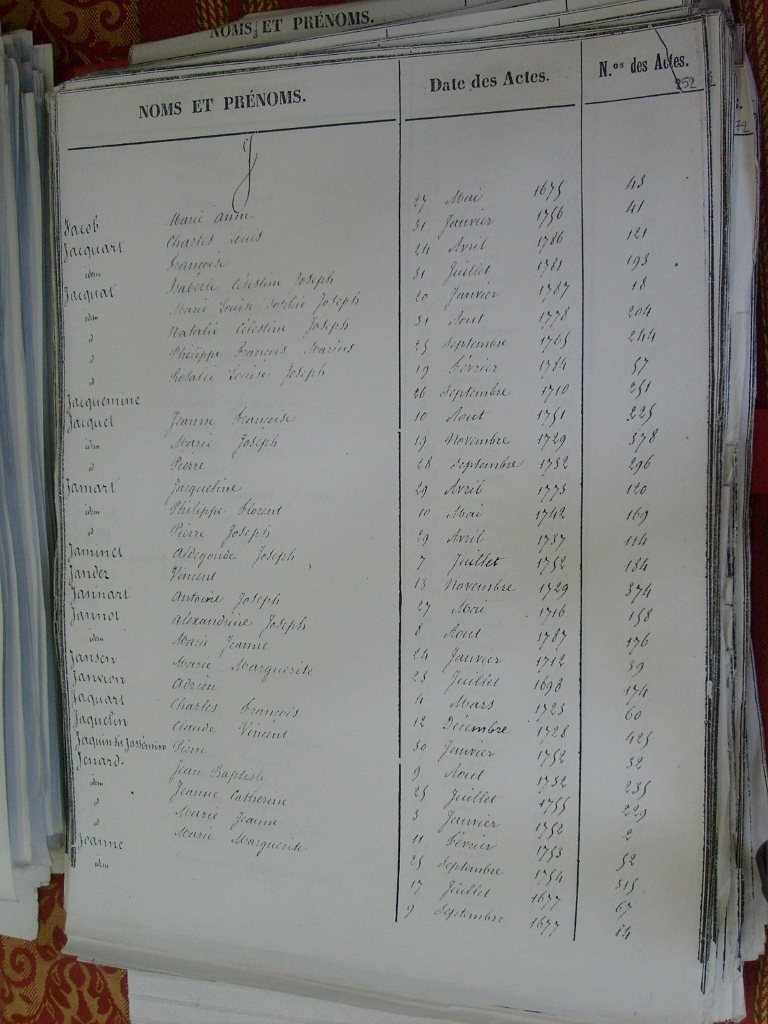 NOMS ET PRÉNOMS.
NOMS ET PRÉNOMS. Date des Actes. N.os des Actes.
252
72
J
Jacob Marie Anne 27 Mai 1675 43
Jacquart Charles Louis 31 Janvier 1756 41
idem Françoise 24 Avril 1786 121
Jacquat Isabelle Célestine Joseph 31 Juillet 1781 193
idem Marie Louise Sophie Joseph 20 Janvier 1787 18
" Natalie Célestine Joseph 31 Aout 1778 204
" Philippe François Marius 25 Septembre 1765 244
" Rosalie Louise Joseph 19 Février 1784 57
Jacquemine 26 Septembre 1710 251
Jacquet Jeanne Françoise 10 Aout 1751 225
idem Marie Joseph 19 Novembre 1729 378
" Pierre 28 Septembre 1732 296
Jamart Jacqueline 29 Avril 1773 120
idem Philippe Florent 10 Mai 1742 169
" Pierre Joseph 29 Avril 1737 114
Jaminet Aldegonde Joseph 7 Juillet 1752 184
Jandez Vincent 13 Novembre 1729 374
Jannart Antoine Joseph 27 Mai 1716 158
Jannot Alexandrine Joseph 8 Aout 1787 176
idem Marie Jeanne 24 Janvier 1712 39
Jansen Marie Marguerite 23 Juillet 1698 174
Janvion Adrien 4 Mars 1723 60
Jaquart Charles François 12 Décembre 1728 425
Jaquelin Claude Vincent 30 Janvier 1752 32
Jaquin dit Jassemin Pierre 9 Aout 1732 235
Jenard Jean Baptiste 25 Juillet 1755 229
idem Jeanne Catherine 3 Janvier 1752 2
" Marie Jeanne 11 Février 1753 52
" Marie Marguerite 25 Septembre 1754 315
Jeanne 17 Juillet 1677 67
idem 9 Septembre 1677 84